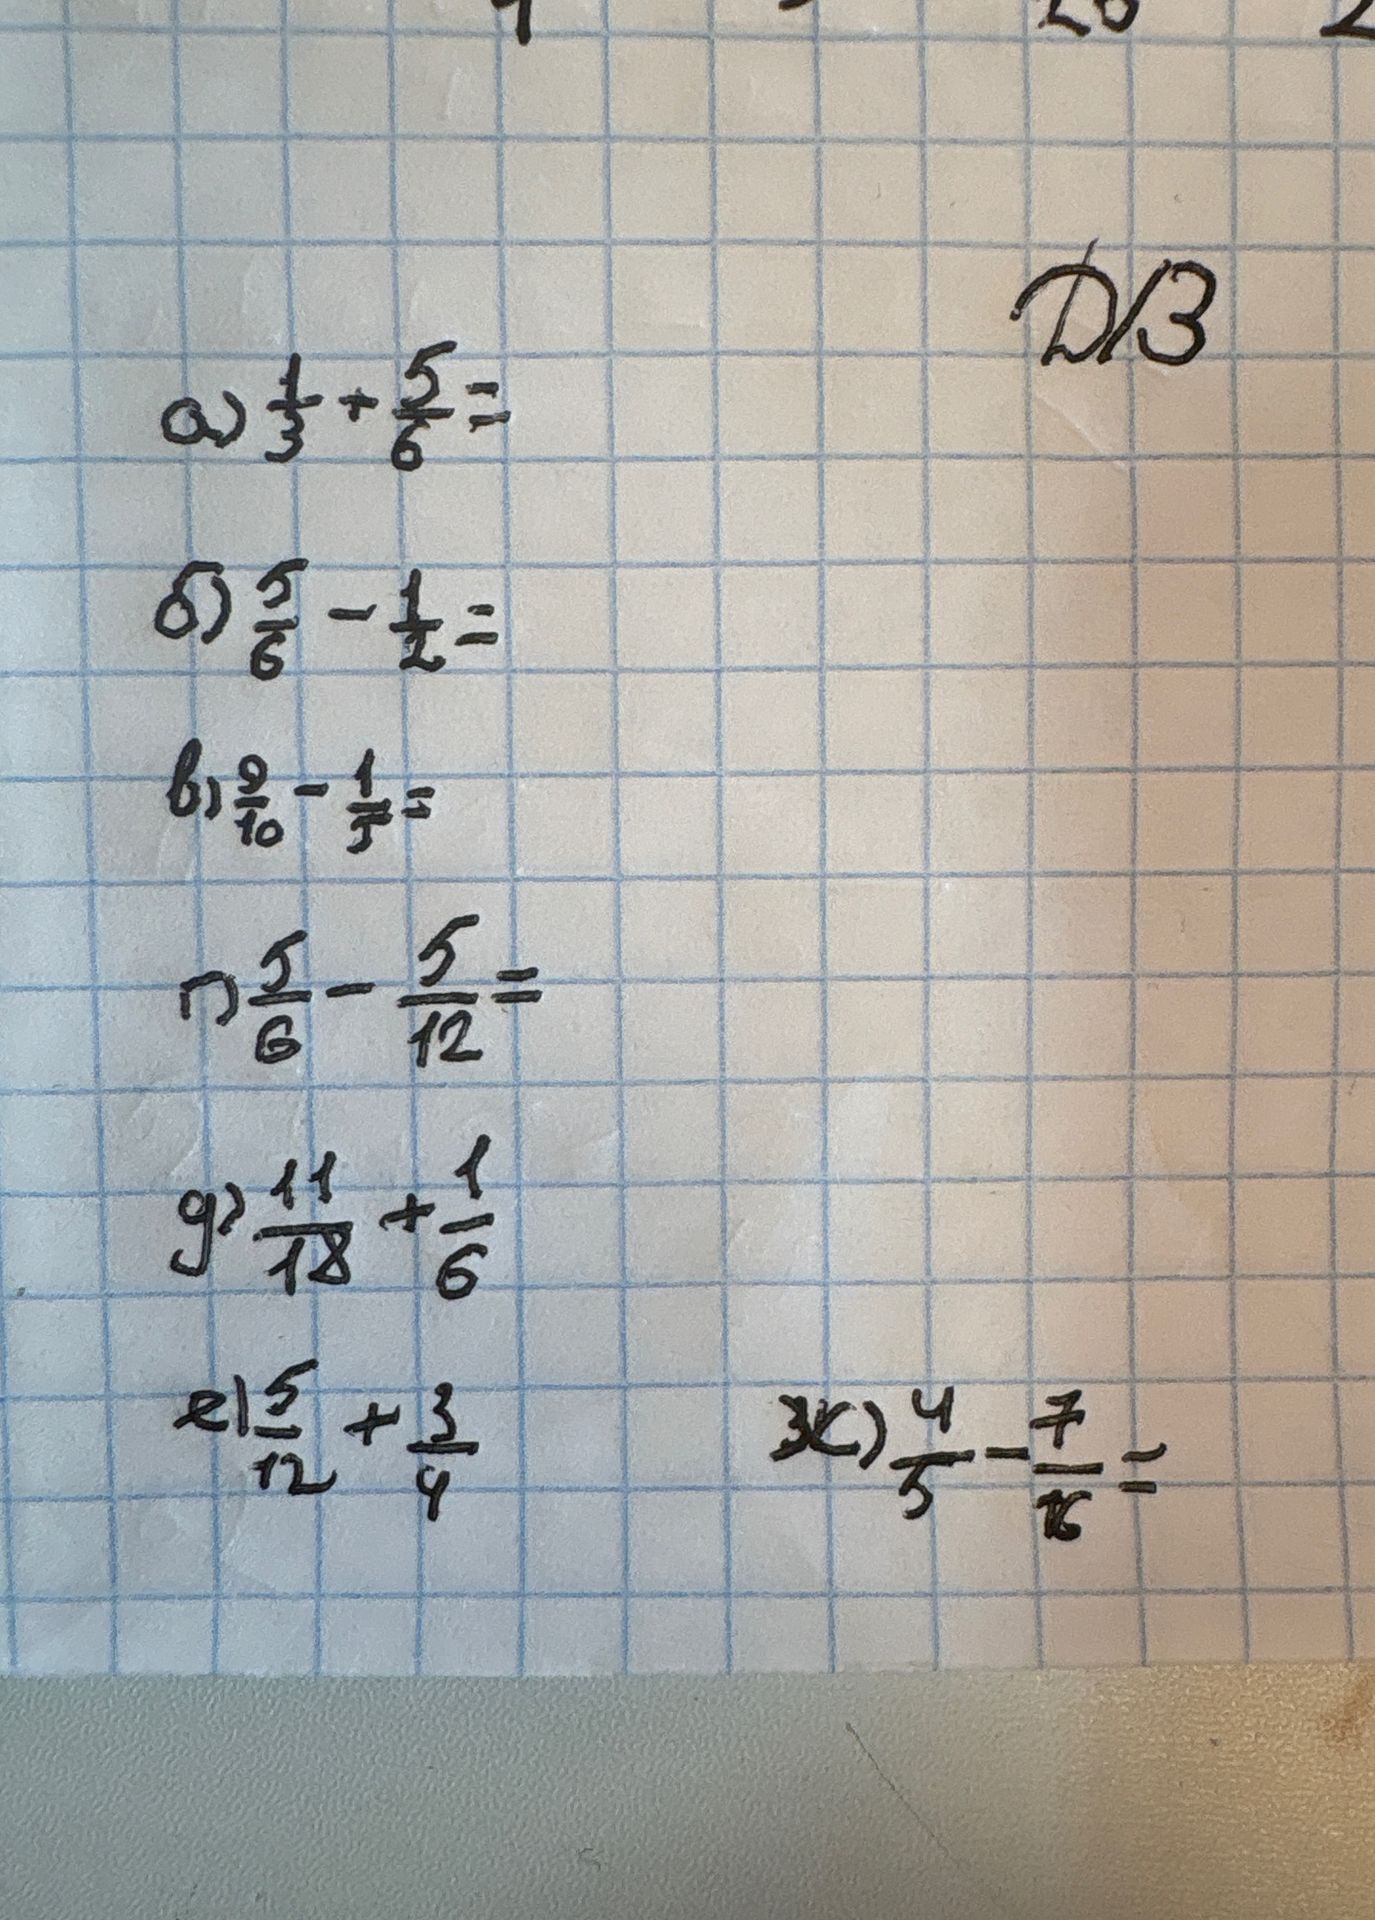 Д/З
а) 1/3 + 5/6 =
б) 5/6 - 1/2 =
в) 9/10 - 1/5 =
г) 5/6 - 5/12 =
д) 11/18 + 1/6
е) 5/12 + 3/4
ж) 4/5 - 7/16 =